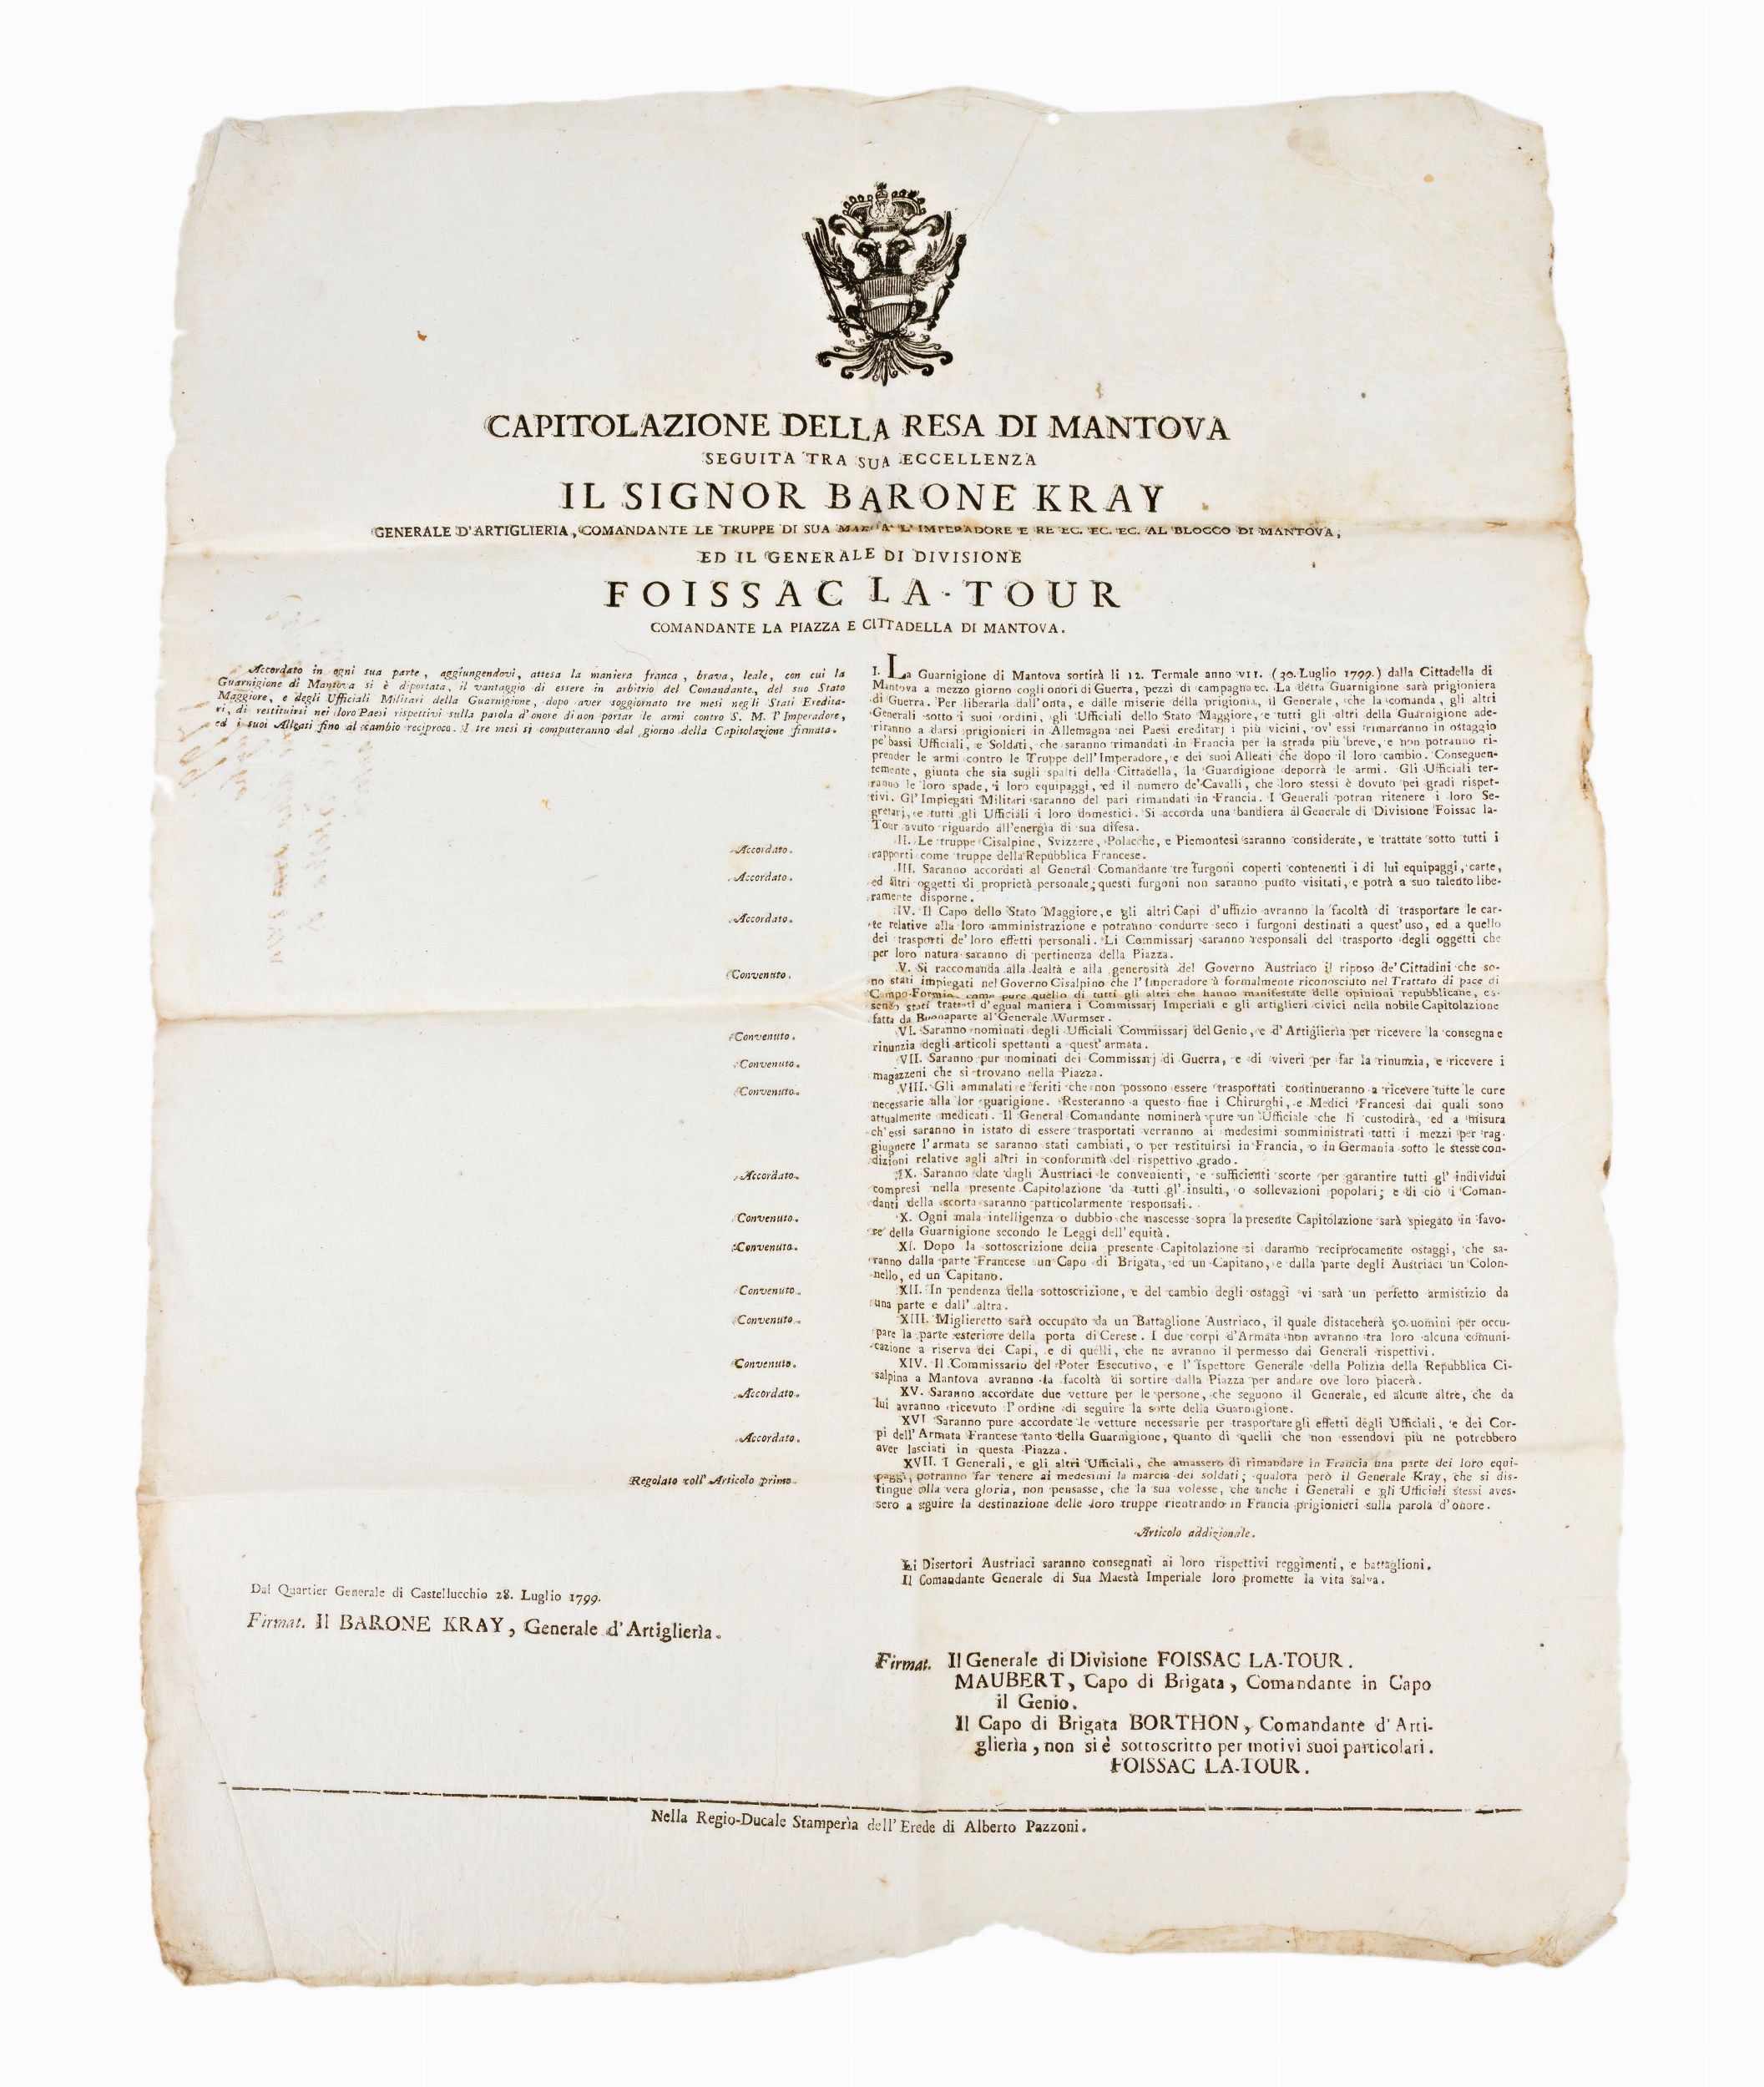 CAPITOLAZIONE DELLA RESA DI MANTOVA
SEGUITA TRA SUA ECCELLENZA
IL SIGNOR BARONE KRAY
GENERALE D'ARTIGLIERIA, COMANDANTE LE TRUPPE DI SUA L'IMPERADORE E RE EC. EC. EC. AL BLOCCO DI MANTOVA,
ED IL GENERALE DI DIVISIONE
FOISSAC LA-TOUR
COMANDANTE LA PIAZZA E CITTADELLA DI MANTOVA.
Accordato in ogni sua parte, aggiungendovi, attesa la maniera franca, brava, leale, con cui la
Guarnigione di Mantova si è diportata, il vantaggio di essere in arbitrio del Comandante, del suo Stato
Maggiore, e degli Ufficiali Militari della Guarnigione, dopo aver soggiornato tre mesi negli Stati Eredita-
rj, di restituirsi nei loro Paesi rispettivi sulla parola d'onore di non portar le armi contro S. M. l'Imperadore,
ed i suoi Alleati fino al cambio reciproco. I tre mesi si computeranno dal giorno della Capitolazione firmata.
I. La Guarnigione di Mantova sortirà li 12. Termale anno VII. (30. Luglio 1799.) dalla Cittadella di
Mantova a mezzo giorno cogli onori di Guerra, pezzi di campagna ec. La detta Guarnigione sarà prigioniera
di Guerra. Per liberarla dall'onta, e dalle miserie della prigionia, il Generale, che la comanda, gli altri
Generali sotto i suoi ordini, gli Ufficiali dello Stato Maggiore, e tutti gli altri della Guarnigione ade-
riranno a darsi prigionieri in Allemagna nei Paesi ereditarj i più vicini, ov' essi rimarranno in ostaggio
pe' bassi Ufficiali, e Soldati, che saranno rimandati in Francia per la strada più breve, e non potranno ri-
prender le armi contro le Truppe dell'Imperadore, e dei suoi Alleati che dopo il loro cambio. Conseguen-
temente, giunta che sia sugli spalti della Cittadella, la Guardigione deporrà le armi. Gli Ufficiali ter-
ranno le loro spade, i loro equipaggi, ed il numero de' Cavalli, che loro stessi è dovuto pei gradi rispet-
tivi. Gl' Impiegati Militari saranno del pari rimandati in Francia. I Generali potran ritenere i loro Se-
gretarj, e tutti gli Ufficiali i loro domestici. Si accorda una bandiera al Generale di Divisione Foissac la-
Tour avuto riguardo all'energìa di sua difesa.
Accordato.
II. Le truppe Cisalpine, Svizzere, Polacche, e Piemontesi saranno considerate, e trattate sotto tutti i
rapporti come truppe della Repubblica Francese.
Accordato.
III. Saranno accordati al General Comandante tre furgoni coperti contenenti i di lui equipaggi, carte,
ed altri oggetti di proprietà personale; questi furgoni non saranno punto visitati, e potrà a suo talento libe-
ramente disporne.
Accordato.
IV. Il Capo dello Stato Maggiore, e gli altri Capi d'uffizio avranno la facoltà di trasportare le car-
te relative alla loro amministrazione e potranno condurre seco i furgoni destinati a quest'uso, ed a quello
dei trasporti de' loro effetti personali. Li Commissarj saranno responsali del trasporto degli oggetti che
per loro natura saranno di pertinenza della Piazza.
Convenuto.
V. Si raccomanda alla lealtà e alla generosità del Governo Austriaco il riposo de' Cittadini che so-
no stati impiegati nel Governo Cisalpino che l'Imperadore à formalmente riconosciuto nel Trattato di pace di
Campo-Formio, come pure quello di tutti gli altri che hanno manifestate delle opinioni repubblicane, es-
sendo stati trattati d'egual maniera i Commissarj Imperiali e gli artiglieri civici nella nobile Capitolazione
fatta da Buonaparte al Generale Wurmser.
Convenuto.
VI. Saranno nominati degli Ufficiali Commissarj del Genio, e d'Artiglierìa per ricevere la consegna e
rinunzia degli articoli spettanti a quest'armata.
Convenuto.
VII. Saranno pur nominati dei Commissarj di Guerra, e di viveri per far la rinunzia, e ricevere i
magazzeni che si trovano nella Piazza.
Convenuto.
VIII. Gli ammalati e feriti che non possono essere trasportati continueranno a ricevere tutte le cure
necessarie alla lor guarigione. Resteranno a questo fine i Chirurghi, e Medici Francesi dai quali sono
attualmente medicati. Il General Comandante nominerà pure un Ufficiale che li custodirà, ed a misura
ch'essi saranno in istato di essere trasportati verranno ai medesimi somministrati tutti i mezzi per rag-
giugnere l'armata se saranno stati cambiati, o per restituirsi in Francia, o in Germania sotto le stesse con-
dizioni relative agli altri in conformità del rispettivo grado.
Accordato.
IX. Saranno date dagli Austriaci le convenienti, e sufficienti scorte per garantire tutti gl' individui
compresi nella presente Capitolazione da tutti gl' insulti, o sollevazioni popolari; e di ciò i Coman-
danti della scorta saranno particolarmente responsali.
Convenuto.
X. Ogni mala intelligenza o dubbio che nascesse sopra la presente Capitolazione sarà spiegato in favo-
re della Guarnigione secondo le Leggi dell'equità.
Convenuto.
XI. Dopo la sottoscrizione della presente Capitolazione si daranno reciprocamente ostaggi, che sa-
ranno dalla parte Francese un Capo di Brigata, ed un Capitano, e dalla parte degli Austriaci un Colon-
nello, ed un Capitano.
Convenuto.
XII. In pendenza della sottoscrizione, e del cambio degli ostaggi vi sarà un perfetto armistizio da
una parte e dall' altra.
Convenuto.
XIII. Miglieretto sarà occupato da un Battaglione Austriaco, il quale distaccherà 50. uomini per occu-
pare la parte esteriore della porta di Cerese. I due corpi d'Armata non avranno tra loro alcuna comuni-
cazione a riserva dei Capi, e di quelli, che ne avranno il permesso dai Generali rispettivi.
Convenuto.
XIV. Il Commissario del Poter Esecutivo, e l'Ispettore Generale della Polizìa della Repubblica Ci-
salpina a Mantova avranno la facoltà di sortire dalla Piazza per andare ove loro piacerà.
Accordato.
XV. Saranno accordate due vetture per le persone, che seguono il Generale, ed alcune altre, che da
lui avranno ricevuto l'ordine di seguire la sorte della Guarnigione.
Accordato.
XVI Saranno pure accordate le vetture necessarie per trasportare gli effetti degli Ufficiali, e dei Cor-
pi dell'Armata Francese tanto della Guarnigione, quanto di quelli che non essendovi più ne potrebbero
aver lasciati in questa Piazza.
Regolato coll' Articolo primo.
XVII. I Generali, e gli altri Ufficiali, che amassero di rimandare in Francia una parte dei loro equi-
paggi, potranno far tenere ai medesimi la marcia dei soldati; qualora però il Generale Kray, che si dis-
tingue colla vera gloria, non pensasse, che la sua volesse, che anche i Generali e gli Ufficiali stessi aves-
sero a seguire la destinazione delle loro truppe rientrando in Francia prigionieri sulla parola d'onore.
Articolo addizionale.
Li Disertori Austriaci saranno consegnati ai loro rispettivi reggimenti, e battaglioni.
Il Comandante Generale di Sua Maestà Imperiale loro promette la vita salva.
Dal Quartier Generale di Castellucchio 28. Luglio 1799.
Firmat. Il BARONE KRAY, Generale d'Artiglierìa.
Firmat. Il Generale di Divisione FOISSAC LA-TOUR.
MAUBERT, Capo di Brigata, Comandante in Capo
il Genio.
Il Capo di Brigata BORTHON, Comandante d'Arti-
glierìa, non si è sottoscritto per motivi suoi particolari.
FOISSAC LA-TOUR.
Nella Regio-Ducale Stamperìa dell'Erede di Alberto Pazzoni.